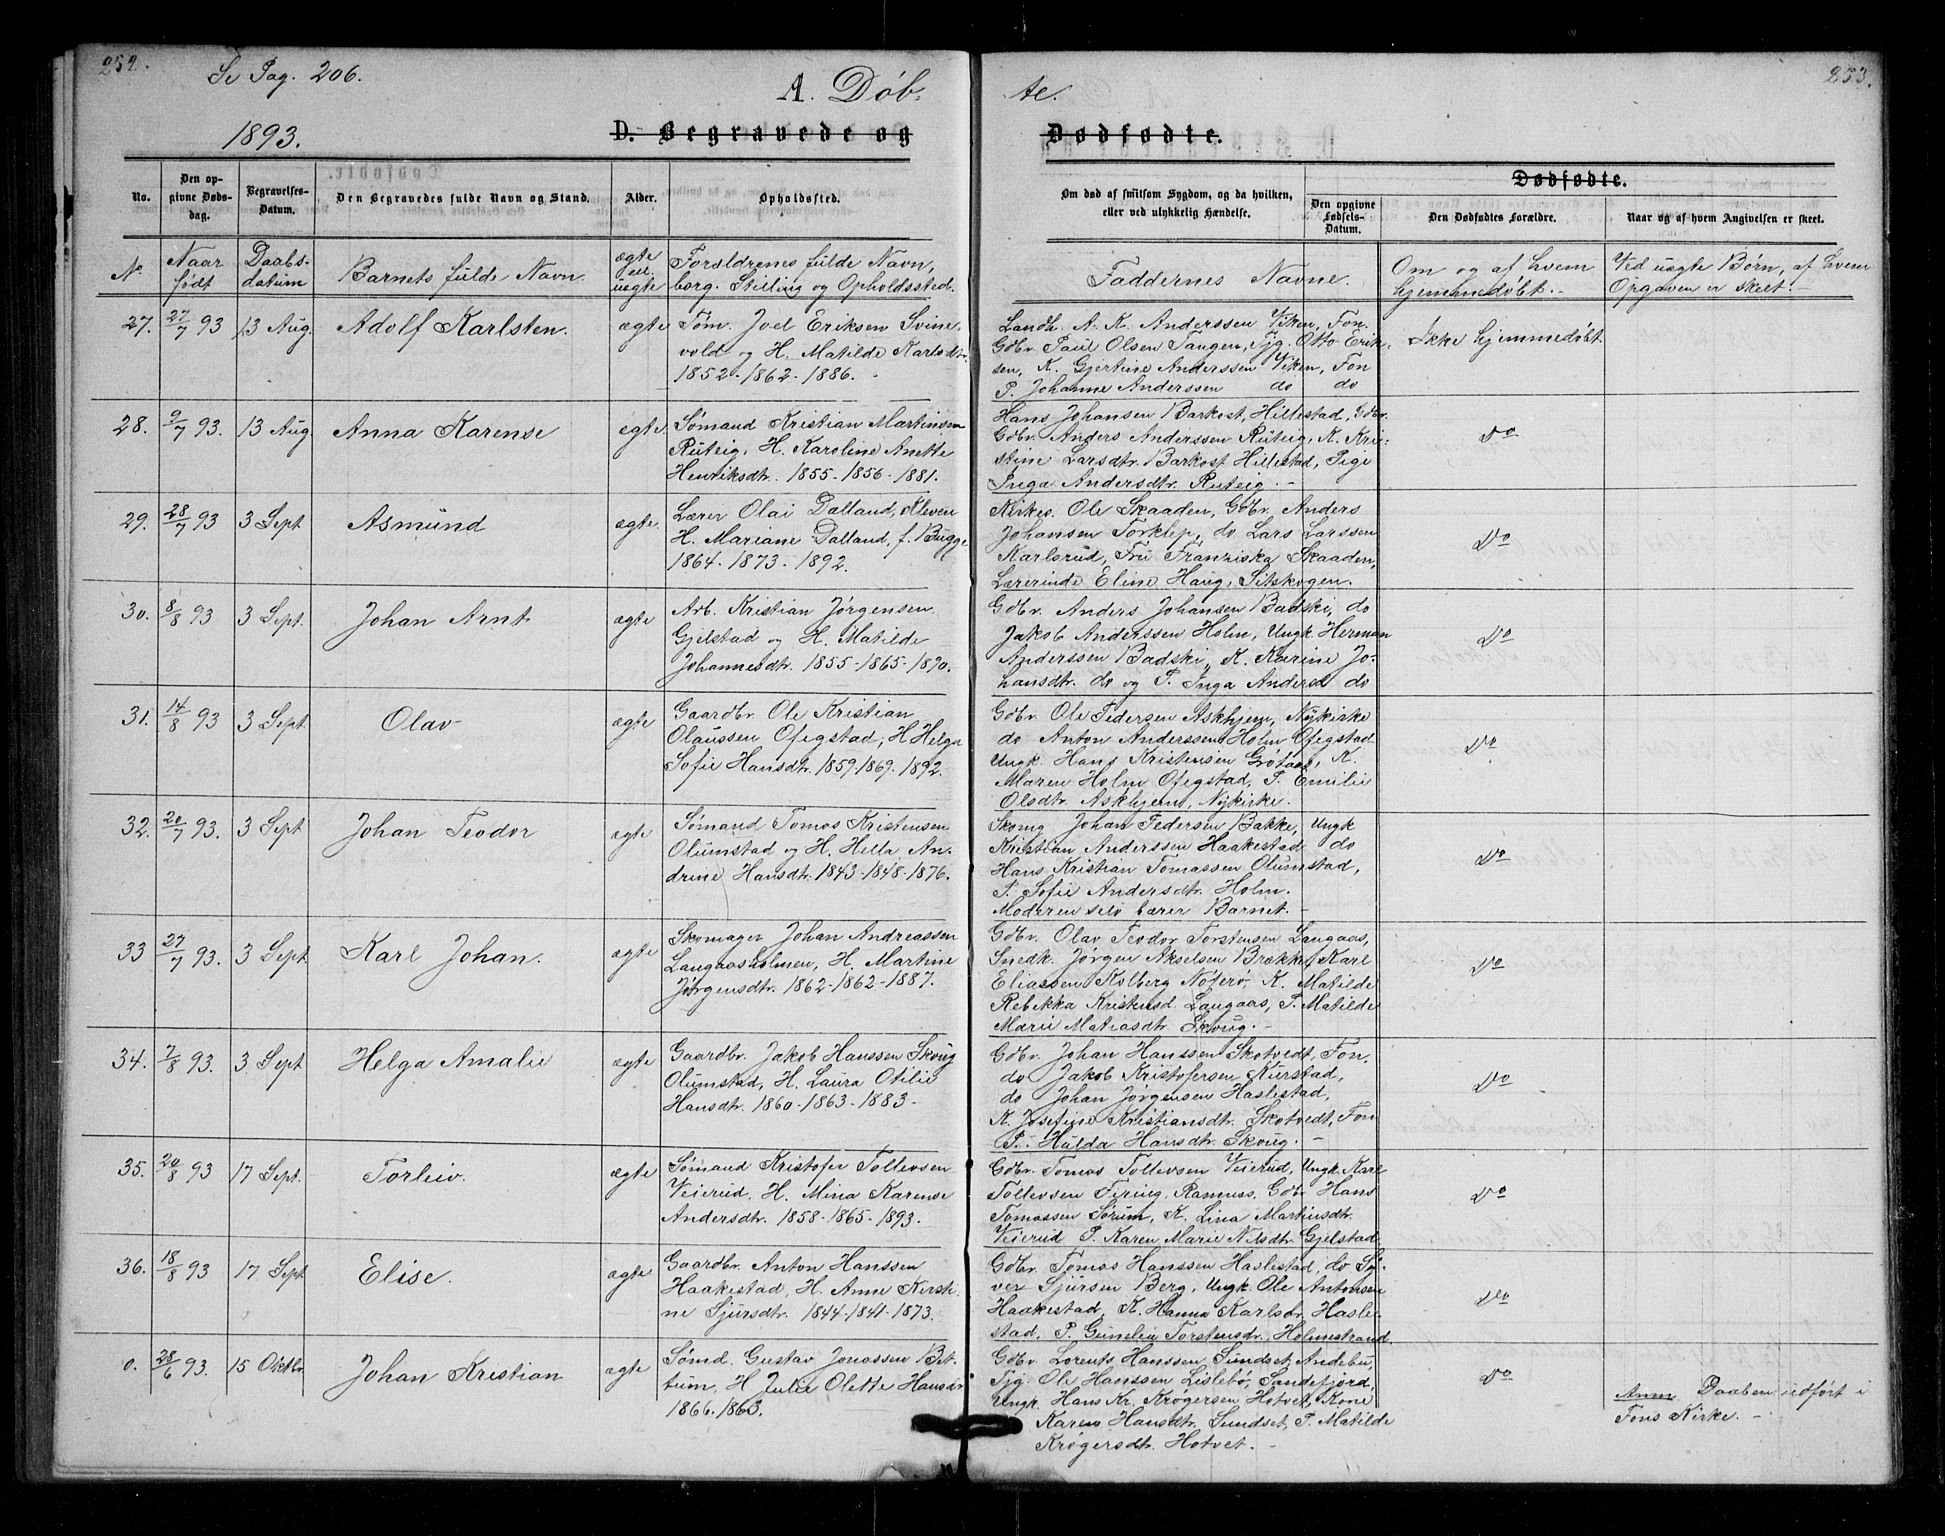 252.
Se Pag. 206.
A. Døb-
te.
253.
1893.
D. Begravede og
Dødfødte.
No.
Den op-
givne Døds-
dag.
Begravelses-
Datum.
Den Begravedes fulde Navn og Stand.
Alder.
Opholdssted.
Om død af smitsom Sygdom, og da hvilken,
eller ved ulykkelig Hændelse.
Dødfødte.
Den opgivne
Fødsels-
Datum.
Den Dødfødtes Forældre.
Naar og af hvem Angivelsen er skeet.
No
Naar
født
Daabs-
datum
Barnets fulde Navn.
ægte
el.
uægte
Forældrenes fulde Navn,
borg. Stilling og Opholdssted.
Faddernes Navne.
Om og af hvem
hjemmedøbt.
Ved uægte Børn, af hvem
Opgaven er skeet.
27. 27/7 93 13 Aug. Adolf Karlsten. ægte
Tøm. Joel Eriksen Svine-
vold og H. Matilde Karlsdtr.
1852-1862-1886.
Landh. A. K. Anderssen Viken, Fon.
Gdbr. Paul Olsen Tangen, Tjg. Otto Erik-
sen, K. Gjertine Anderssen Viken, Fon
P. Johanne Anderssen do do
Ikke hjemmedøbt.
28. 9/7 93. 13 Aug. Anna Karense ægte.
Sømand Kristian Martinsen
Ruteig, H. Karoline Anette
Henriksdtr. 1855-1856-1881.
Hans Johansen Barkost, Hillestad, Gdbr.
Gdbr. Anders Anderssen Ruteig, K. Kri-
stine Larsdtr. Barkost Hillestad, Pige
Inga Andersdtr. Ruteig.
Do
29. 28/7 93 3 Sept Asmund ægte.
Lærer Olai Dalland, Kleven
H. Mariane Dalland, f. Bugge
1864-1873-1892.
Kirkes. Ole Skaaden, Gdbr. Anders
Johansen Torklep, do Lars Larssen
Karlsrud, Fru Franziska Skaaden,
Lærerinde Eline Haug, Sitskogen.
Do
30. 8/8 93 3 Sept. Johan Arnt ægte
Arb. Kristian Jørgensen
Gjelstad og H. Matilde
Johannesdtr. 1855-1865-1890.
Gdbr. Anders Johansen Badski, do
Jakob Anderssen Holm, Ungk. Herman
Anderssen Badski, K. Karine Jo-
hansdtr. do og P. Inga Andersd do
Do
31. 14/8 93 3 Sept. Olav ægte
Gaardbr. Ole Kristian
Olaussen Ofegstad, H. Helga
Sofie Hansdtr. 1859-1869-1892.
Gdbr. Ole Pedersen Askhjem, Nykirke
do Anton Anderssen Holm Ofegstad
Ungk. Hans Kristensen Grøtaas, K.
Maren Holm Ofegstad, P. Emilie
Olsdtr. Askhjem, Nykirke.
Do
32. 20/7 93. 3 Sept Johan Teodor ægte
Sømand Tomas Kristensen
Olumstad og H. Hella An-
drine Hansdtr. 1843-1848-1876.
Skomg Johan Pedersen Bakke, Ungk
Kristian Anderssen Haakestad do
Hans Kristian Tomassen Olumstad,
P. Sofie Andersdtr. Holm.
Moderen selv bærer Barnet.
Do
33 27/7 93. 3 Sept. Karl Johan. ægte
Skomager Johan Andreassen
Langaasholmen, H. Martine
Jørgensdtr. 1862-1862-1887.
Gdbr. Olav Teodor Torstensen Langaas,
Snedk. Jørgen Akselsen Brække, Karl
Eliassen Kolberg Nøterø, K. Matilde
Rebikka Kristensd Langaas, P. Matilde
Marie Matiasdtr. Skoug.
Do
34. 7/8 93. 3 Sept Helga Amalie ægte
Gaardbr. Jakob Hanssen Skoug
Olumstad, H. Laura Otilie
Hansdtr. 1860-1863-1883-
Gdbr. Johan Hanssen Skotvedt, Fon.
do Jakob Kristofersen Kurstad,
do Johan Jørgensen Haslestad,
K. Josefine Kristiansdtr. Skotvedt, Fon
P. Hulda Hansdtr. Skoug.
Do
35. 20/8 93 17 Sept. Torleiv. ægte
Sømand Kristofer Tollevsen
Veierud, H. Mina Karense
Andersdtr. 1858-1865-1893.
Gdbr. Tomas Tollevsen Veierud, Ungk. Karl
Tollevsen Firing, Ramnes, Gdbr Hans
Tomassen Sørum, K. Lina Martinsdtr.
Veierud P. Karen Marie Nilsdtr. Gjelstad.
Do
36. 18/8 93 17 Sept. Elise. ægte
Gaardbr. Anton Hanssen
Haakestad, H. Anne Kirsti-
ne Sjursdtr. 1844-1841-1873.
Gdbr. Tomas Hanssen Haslestad, do Sy-
ver Sjursen Berg, Ungk. Ole Antonsen
Haakestad, K. Hanna Karlsdr. Hasle-
stad, P. Gunelia Torstensdr. Holmestrand.
Do
0. 28/6 93. 15 Oktbr Johan Kristian ægte
Sømd. Gustav Jonassen Bet-
tum, H Julie Olette Hansdr.
1866-1863.
Gdbr. Lorents Hanssen Sundset, Andebu,
Tjg. Ole Hanssen Lislebø, Sandefjord,
Ungk. Hans Kr. Krøgersen Hotvet, Kone
Karen Hansdtr. Sundset, P. Matilde
Krøgersdtr. Hotvet.
Do
Anm. Daaben udført i
Fons Kirke.